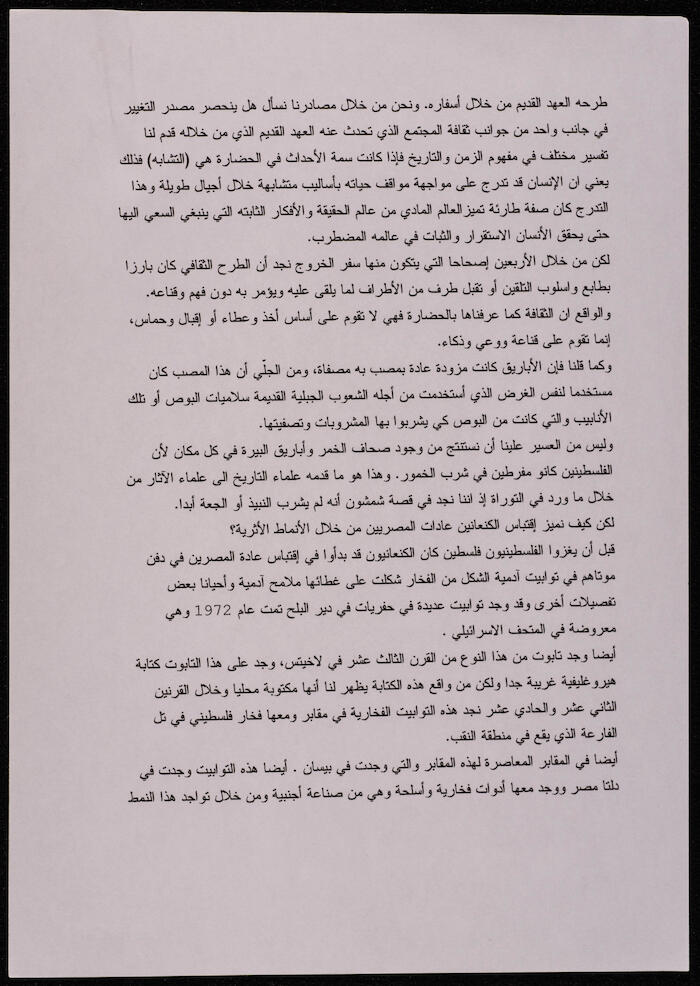 طرحه العهد القديم من خلال أسفاره. ونحن من خلال مصادرنا نسأل هل ينحصر مصدر التغيير
في جانب واحد من جوانب ثقافة المجتمع الذي تحدث عنه العهد القديم الذي من خلاله قدم لنا
تفسير مختلف في مفهوم الزمن والتاريخ فإذا كانت سمة الأحداث في الحضارة هي (التشابه) فذلك
يعني ان الإنسان قد تدرج على مواجهة مواقف حياته بأساليب متشابهة خلال أجيال طويلة وهذا
التدرج كان صفة طارئة تميزالعالم المادي من عالم الحقيقة والأفكار الثابته التي ينبغي السعي اليها
حتى يحقق الأنسان الاستقرار والثبات في عالمه المضطرب.
لكن من خلال الأربعين إصحاحا التي يتكون منها سفر الخروج نجد أن الطرح الثقافي كان بارزا
بطابع واسلوب التلقين أو تقبل طرف من الأطراف لما يلقى عليه ويؤمر به دون فهم وقناعه.
والواقع ان الثقافة كما عرفناها بالحضارة فهي لا تقوم على أساس أخذ وعطاء أو إقبال وحماس،
إنما تقوم على قناعة ووعي وذكاء.
وكما قلنا فإن الأباريق كانت مزودة عادة بمصب به مصفاة، ومن الجلّي أن هذا المصب كان
مستخدما لنفس الغرض الذي أستخدمت من أجله الشعوب الجبلية القديمة سلاميات البوص أو تلك
الأنابيب والتي كانت من البوص كي يشربوا بها المشروبات وتصفيتها.
وليس من العسير علينا أن نستنتج من وجود صحاف الخمر وأباريق البيرة في كل مكان لأن
الفلسطينين كانو مفرطين في شرب الخمور. وهذا هو ما قدمه علماء التاريخ الى علماء الآثار من
خلال ما ورد في التوراة إذ اننا نجد في قصة شمشون أنه لم يشرب النبيذ أو الجعة أبدا.
لكن كيف نميز إقتباس الكنعانين عادات المصريين من خلال الأنماط الأثرية؟
قبل أن يغزوا الفلسطينيون فلسطين كان الكنعانيون قد بدأوا في إقتباس عادة المصرين في دفن
موتاهم في توابيت آدمية الشكل من الفخار شكلت على غطائها ملامح آدمية وأحيانا بعض
تفصيلات أخرى وقد وجد توابيت عديدة في حفريات في دير البلح تمت عام 1972 وهي
معروضة في المتحف الاسرائيلي .
أيضا وجد تابوت من هذا النوع من القرن الثالث عشر في لاخيتس، وجد على هذا التابوت كتابة
هيروغليفية غريبة جدا ولكن من واقع هذه الكتابة يظهر لنا أنها مكتوبة محليا وخلال القرنين
الثاني عشر والحادي عشر نجد هذه التوابيت الفخارية في مقابر ومعها فخار فلسطيني في تل
الفارعة الذي يقع في منطقة النقب.
أيضا في المقابر المعاصرة لهذه المقابر والتي وجدت في بيسان . أيضا هذه التوابيت وجدت في
دلتا مصر ووجد معها أدوات فخارية وأسلحة وهي من صناعة أجنبية ومن خلال تواجد هذا النمط